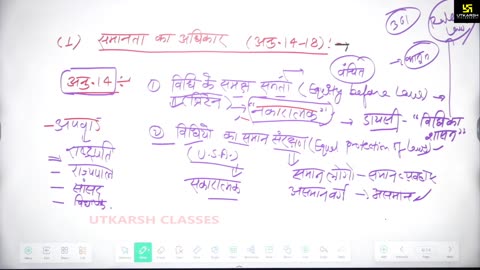 UTKARSH CLASSES
361
(1) समानता का अधिकार (अनु. 14-18) :-
वंचित
अनु. 14 ÷
① विधि के समक्ष समता (Equality before Law)
ब्रिटेन
"नकारात्मक"
डायसी - "विधि का शासन"
- अपवाद
② विधियों का समान संरक्षण (Equal protection of Law)
- राष्ट्रपति
(U.S.A.)
- राज्यपाल
सकारात्मक
समान - समान व्यवहार
- सांसद
असमान वर्ग - असमान
UTKARSH CLASSES